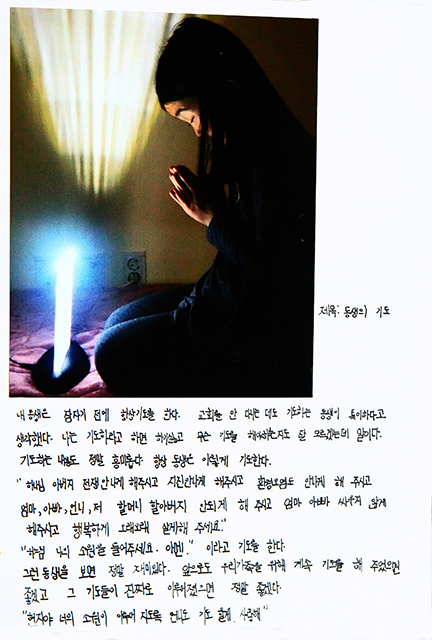 제목: 동생의 기도
내 동생은 잠자기 전에 항상 기도를 한다. 교회를 안 다니는데도 기도하는 동생이 특이하다고
생각했다. 나는 기도하라고 하면 하기싫고 무슨 기도를 해야하는지도 잘 모르겠는데 말이다.
기도하는 내용도 정말 흥미롭다. 항상 동생은 이렇게 기도한다.
"하나님 아버지 전쟁안나게 해주시고 지진안나게 해주시고 환경오염도 안나게 해 주시고
엄마, 아빠, 언니, 저 할머니 할아버지 안되게 해 주시고 엄마 아빠 싸우지 않게
해주시고 행복하게 오래오래 살게해 주세요."
"하나님 나의 소원을 들어주세요. 아멘." 이라고 기도를 한다.
그런 동생을 보면 정말 재미있다. 앞으로도 우리가족을 위해 계속 기도를 해 주었으면
좋겠고 그 기도들이 진짜로 이루어졌으면 정말 좋겠다.
너의 소원이 이루어 지도록 언니도 기도 할게. 사랑해"